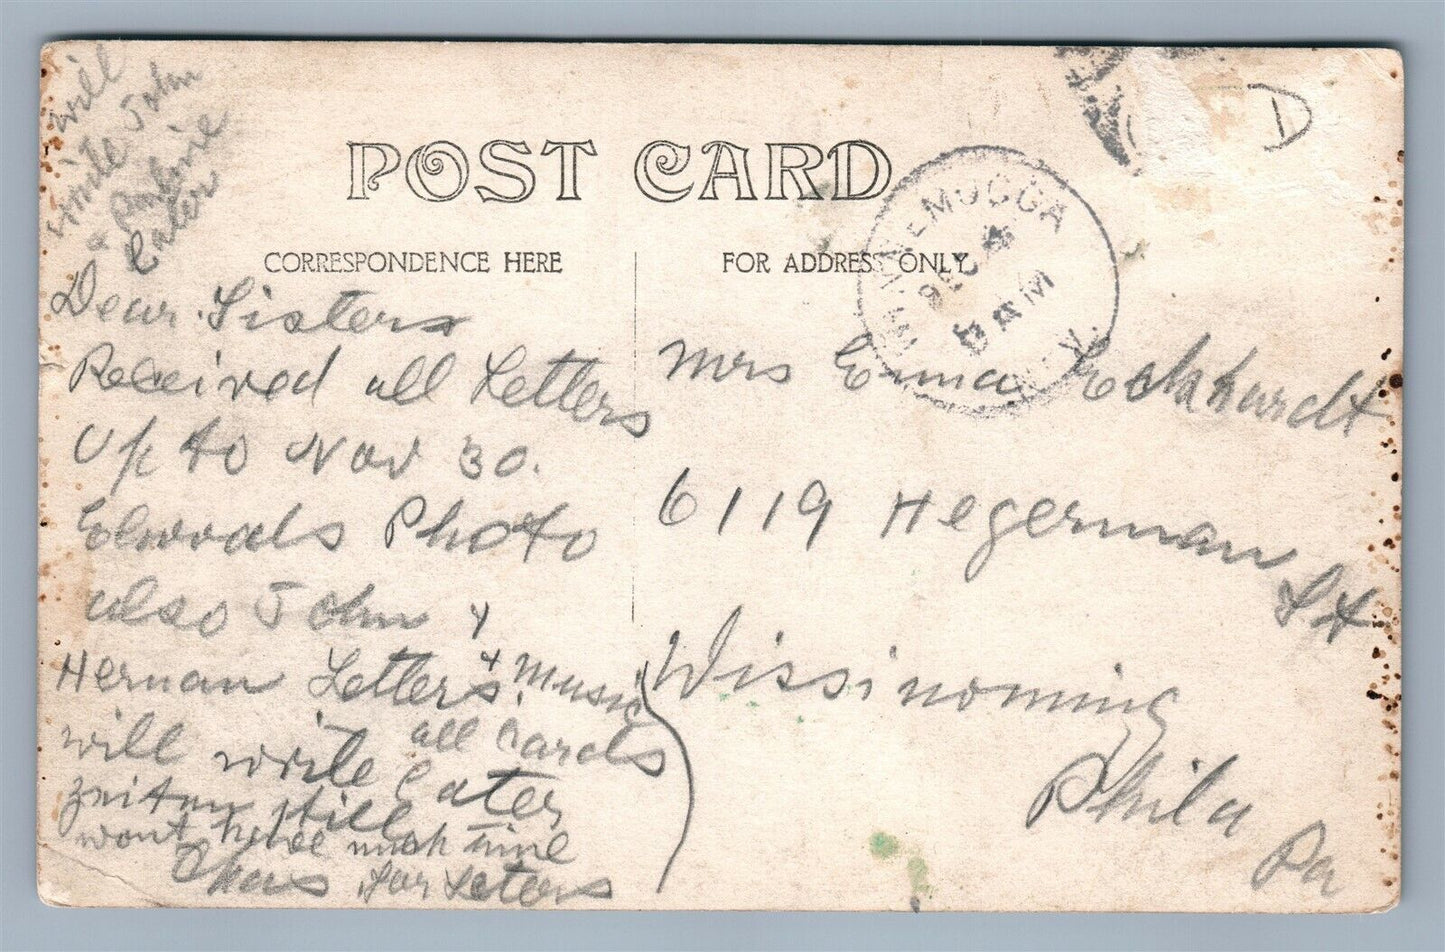 will
write John
& Pauline
Later
POST CARD
CORRESPONDENCE HERE
FOR ADDRESS ONLY
WINNEMUCCA
DEC
AM
NEV.
D
Dear Sisters
Received all Letters
Up to Nov 30.
Elwoods Photo
also John &
Herman Letters & Music
all Cards
will write Later
still
wont have much time
Chas for Letters
Mrs Emma Eckhardt
6119 Hegerman
St
Wissinoming
Phila
Pa